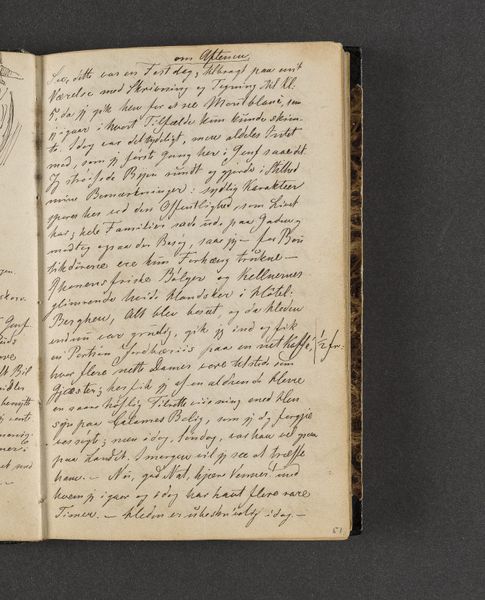 om Aftenen,
See, dette var en Fest dag, tilbragt paa mit
Værelse med Skrivning og Tegning til Kl:
5, da jeg gik hen for at see Mont blanc, som
jeg igaar i hvert Tilfælde kun kunde skim-
te. Idag var det tydeligt, men aldeles hvidt
med, som jeg første Gang her i Genf saae det.
Jeg strøifede Byen rundt og gjorde i Stilhed
mine Bemærkninger: sydlig Karakteer
spores her ved den Offentlighed, som Livet
har; hele Familier sad ude paa Gaden og
modtog ogsaa der Besøg, saae jeg – for Bou
tikdørene ere kun Forhæng trukne –
Rhonens friske Bølger og Kellnernes
glimrende hvide Handsker i Hôtel:
Berghou, Alt blev beseet, og da Heden
endnu var grundig, gik jeg ind og fik
en Portion Jordbæriis paa en net Kaffé, ½ fr.
hvor flere nette Damer vare tilstede som
Gjæster; her fik jeg af en aldrende Herre
en saare høflig Tilrettevisning med Hen
syn paa Calames Bolig, som jeg dog forgjæ
ves søgte; men idag, Søndag, var han vel ogsaa
paa Landet. Imorgen vil jeg see at træffe
ham. – Nu, god Nat, kjære Venner! med
hvem jeg igaar og idag har havt flere rare
Timer. – Heden er ubeskrivelig idag –
61.